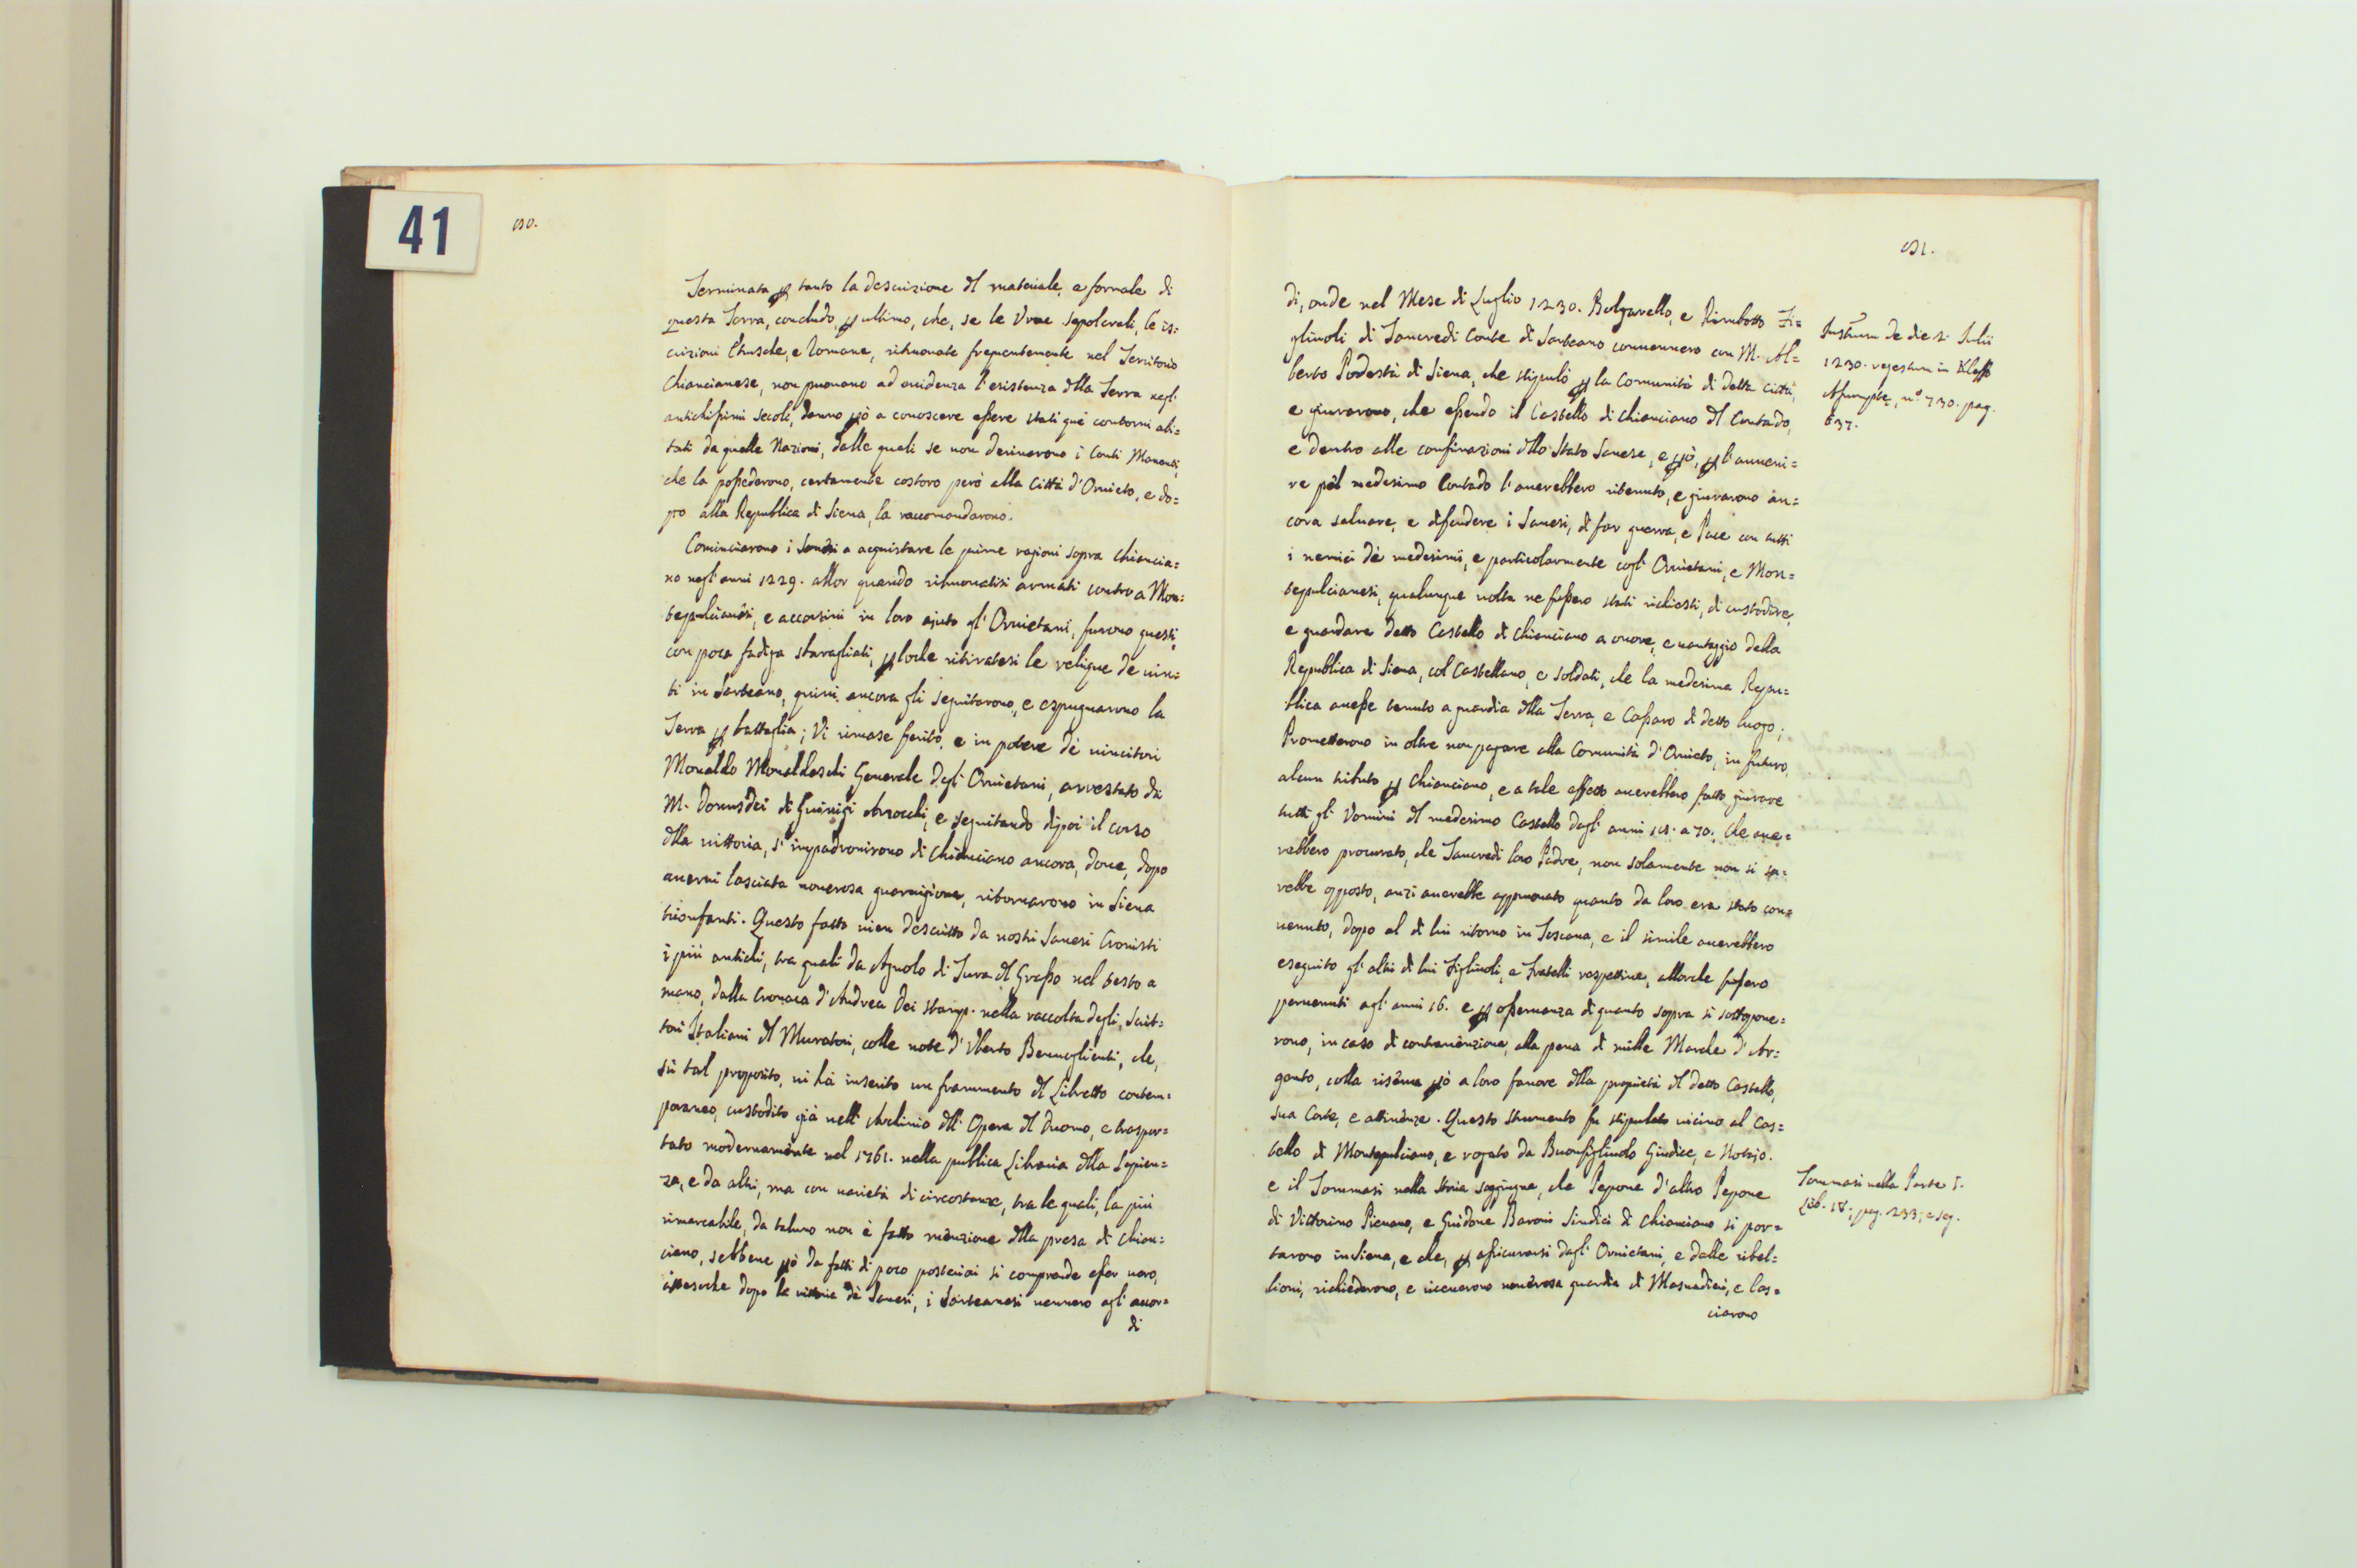 41
Terminata p tanto la descrizione dl materiale, e formale di
questa Terra, concludo, p ultimo, che, se le Urne sepolcrali, le is=
crizioni Etrusche, e Romane, ritrouate frequentemente nel Territorio
Chiancianese, non prouano ad euidenza l'esistenza dlla Terra negl'
antichissimi secoli, danno pò a conoscere essere stati què contorni abi=
tati da quelle Nazioni, dalle quali se non deriuarono i Conti Manenti,
che la possederono, certamente costoro però alla Città d'Oruieto, e do=
po alla Republica di Siena, la raccomandarono.
Cominciarono i Sanesi a acquistare le prime ragioni sopra Chiancia=
no negl'anni 1229. allor quando ritrouatisi armati contro a Mon=
tepulcianesi, e accorsiui in loro ajuto gl'Oruietani, furono questi,
con poca fadiga sbaragliati, p loche ritiratesi le relique dè uin=
ti in Sarteano, quiui ancora gli seguitarono, e espugnarono la
Terra p battaglia; Vi rimase ferito, e in potere dè uincitori
Monaldo Monaldeschi Generale degl'Oruietani, arrestato da
M. Donusdei di Guinigi Arzocchi, e seguitando dipoi il corso
dlla uittoria, s'inpadronirono di Chianciano ancora, doue, dopo
auerui lasciata nonerosa guarnigione, ritornarono in Siena
trionfanti. Questo fatto uien descritto da nostri Sanesi Cronisti
i più antichi, tra quali da Agnolo di Tura dl Grasso nel testo a
mano, dalla Cronaca d'Andrea Dei stamp. nella raccolta degli, Scrit=
tori Italiani dl Muratori, colle note d'Uberto Benuoglienti, che,
sù tal proposito, ui hà inserito un frammento dl Libretto contem=
poraneo, custodito già nell'Archiuio dll'Opera dl Duomo, e traspor=
tato modernamente nel 1761. nella publica Libraria dlla Sapien=
za, e da altri, ma con uarietà di circostanze, tra le quali, la più
rimarcabile, da taluno non è fatto menzione dlla presa di Chian=
ciano, sebbene pò da fatti di poco posteriori si comprende esser uero,
attesoche dopo la uittoria dè Sanesi, i Sarteanesi uennero agl'accor=
di
di, onde nel Mese di Luglio 1230. Bulgarello, e Rimbotto Fi=
gliuoli di Tancredi Conte di Sarteano conuennero con M. Al=
berto Podestà di Siena, che stipulò p la Comunità di detta Città,
e giurarono, che essendo il Castello di Chianciano dl Contado,
e dentro alle confinazioni dllo Stato Sanese, e pò, p l'auueni=
re pèl medesimo Contado l'auerebbero ritenuto, e giurarono an=
cora saluare, e difendere i Sanesi, di far guerra, e Pace con tutti
i nemici dè medesimi, e particolarmente cogl'Oruietani, e Mon=
tepulcianesi, qualunque uolta ne fussero stati richiesti, di custodire,
e guardare detto Castello di Chianciano a onore, e uantaggio della
Republica di Siena, col Castellano, e soldati, che la medesima Repu=
blica auesse tenuto a guardia dlla Terra, e Cassaro di detto luogo;
Prometterono in oltre non pagare alla Comunità d'Oruieto, in futuro,
alcun tributo p Chianciano, e a tale effetto auerebbero fatto giurare
tutti gl'Uomini dl medesimo Castello dagl'anni 15. a 70. che aue=
rebbero procurato, che Tancredi loro Padre, non solamente non si sa=
rebbe opposto, anzi auerebbe approuato quanto da loro era stato con=
uenuto, dopo al di lui ritorno in Toscana, e il simile auerebbero
eseguito gl'altri di lui Figliuoli, e Fratelli respettiue, allorche fussero
peruenuti agl'anni 16. e p osseruanza di quanto sopra si sottopone=
rono, in caso di contrauenzione, alla pena di mille Marche d'Ar=
gento, colla riserua pò a loro fauore dlla proprietà dl detto Castello,
sua Corte, e attinenze. Questo strumento fu stipulato uicino al Cas=
tello di Montepulciano, e rogato da Buonfigliuolo Giudice, e Notajo.
e il Tommasi nella Storia soggiugne, che Pepone d'altro Pepone
di Vittorino Pieuano, e Guidone Baroni Sindici di Chianciano si por=
tarono in Siena, e che, p assicurarsi dagl'Oruietani, e dalle ribel=
lioni, richiederono, e riceuerono nonerosa guardia di Masnadieri, e las=
ciarono
1230. regestum in Kleffo
Assumptę, n.° 730. pag.
637.
Tommasi nella Parte I.
Lib. IV. pag. 233, e seg.